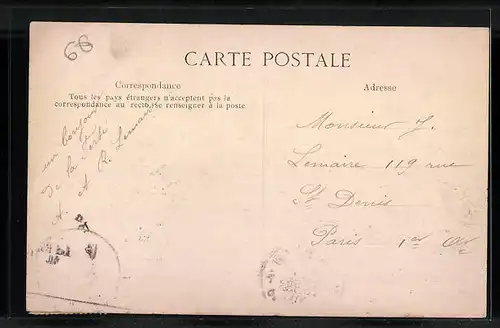 68
CARTE POSTALE
Correspondance
Tous les pays étrangers n'acceptent pas la
correspondance au recto, (se renseigner à la poste
un bonjour
de la Ferté
A. et R. Lemaire
Adresse
Monsieur J.
Lemaire 119 rue
St Denis
Paris 1er Arr